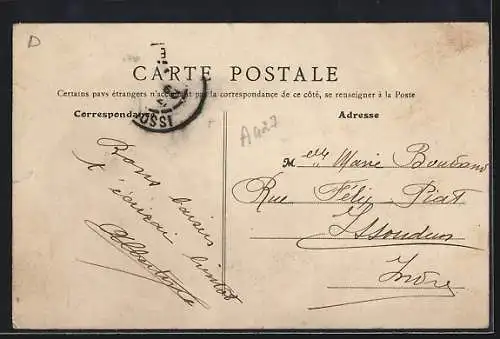 D
CARTE POSTALE
Certains pays étrangers n'acceptant pas la correspondance de ce côté, se renseigner à la Poste
Correspondance
Adresse
ISSO
A427
Bons baisers
t'écrirai bientôt
Melle Marie
Rue Félix Piat
Issoudun
Indre